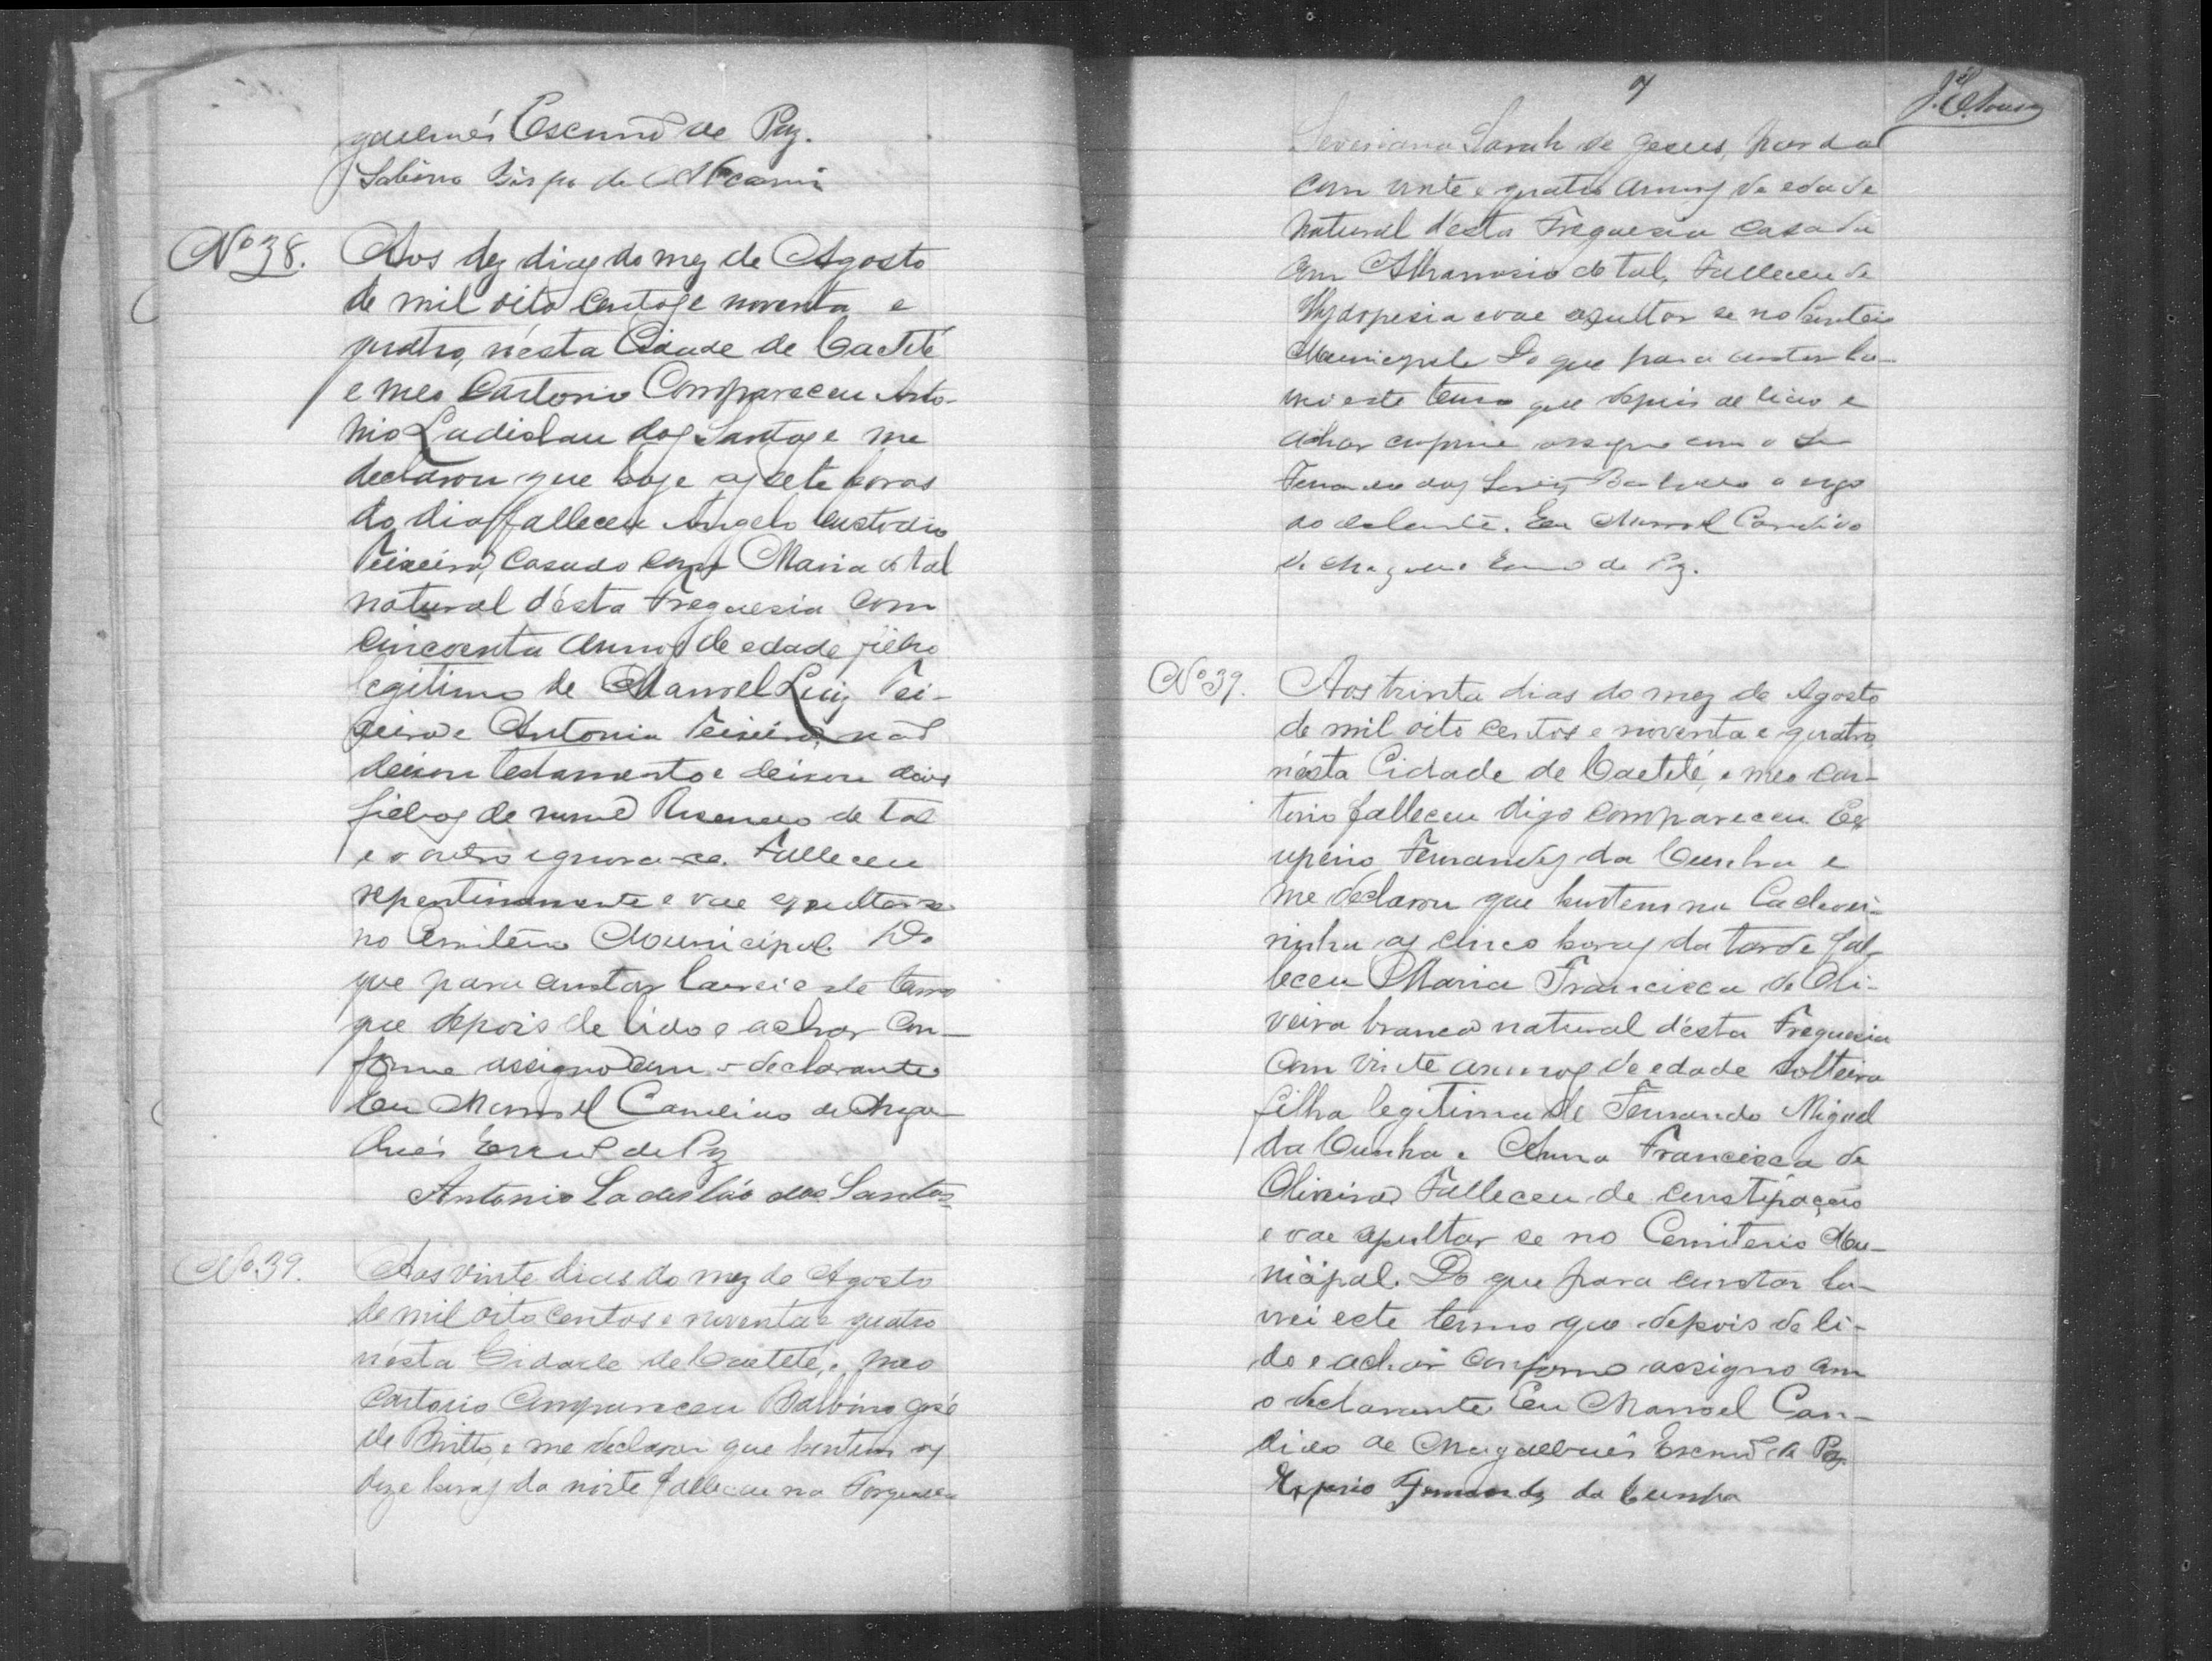 galhães Escrivão de Paz.
Sabino Bispo de
Nº 38.
Aos dez dias do mez de Agosto
de mil oito centos e noventa e
quatro, n'ésta Cidade de Caetité
e meo Cartorio Compareceu Anto-
nio Ladislau dos Santos e me
declarou que hoje as sete horas
do dia falleceu Angelo Custodio
Teixeira, casado com Maria de tal
natural d'ésta Freguesia com
cincoenta annos de edade filho
legitimo de Manoel Luiz Tei-
xeira e Antonia Teixeira, não
deixou testamento e deixou dois
filhos de nome de tal
e o outro ignora-se. Falleceu
repentinamente e vae sepultar-se
no Cemiterio Municipal. Do
que para constar lavrei este termo
que depois de lido e achar con-
forme assigno com o declarante
Eu Manoel Candido de Maga-
lhães Escrivão de Paz
Antonio Ladesláo dos Santos
Nº 39.
Aos vinte dias do mez de Agosto
de mil oito centos e noventa e quatro
n'ésta Cidade de Caetité, e meo
Cartorio Compareceu Balbino José
de Britto, e me declarou que hontem as
doze horas da noite falleceu na
7
Severiana Sarah de Jesus, parda
com vinte e quatro annos de edade
natural d'ésta Freguesia casada
com Athanasio de tal, Falleceu de
Hydropesia e vae sepultar se no Cemiterio
Municipal. Do que para constar la-
vrei este termo que depois de lido e
achar conforme assigno com o
Fernandes a rogo
do declarante. Eu Manoel Candido
de Magalhães Escrivão de Paz.
Nº 39.
Aos trinta dias do mez de Agosto
de mil oito centos e noventa e quatro,
n'ésta Cidade de Caetité, e meo car-
torio falleceu digo compareceu Ex
uperio Fernandes da Cunha e
me declarou que hontem na Cachoei-
rinha as cinco horas da tarde fal-
leceu Maria Francisca de Oli-
veira branca natural d'ésta Freguesia
com vinte annos de edade solteira
filha legitima de Fernando Miguel
da Cunha e Anna Francisca de
Oliveira Falleceu de constipação
e vae sepultar se no Cemiterio Mu-
nicipal. Do que para constar la-
vrei este termo que depois de li-
do e achar conforme assigno com
o declarante Eu Manoel Can-
dido de Magalhães Escrivão de Paz
Exuperio Fernandes da Cunha